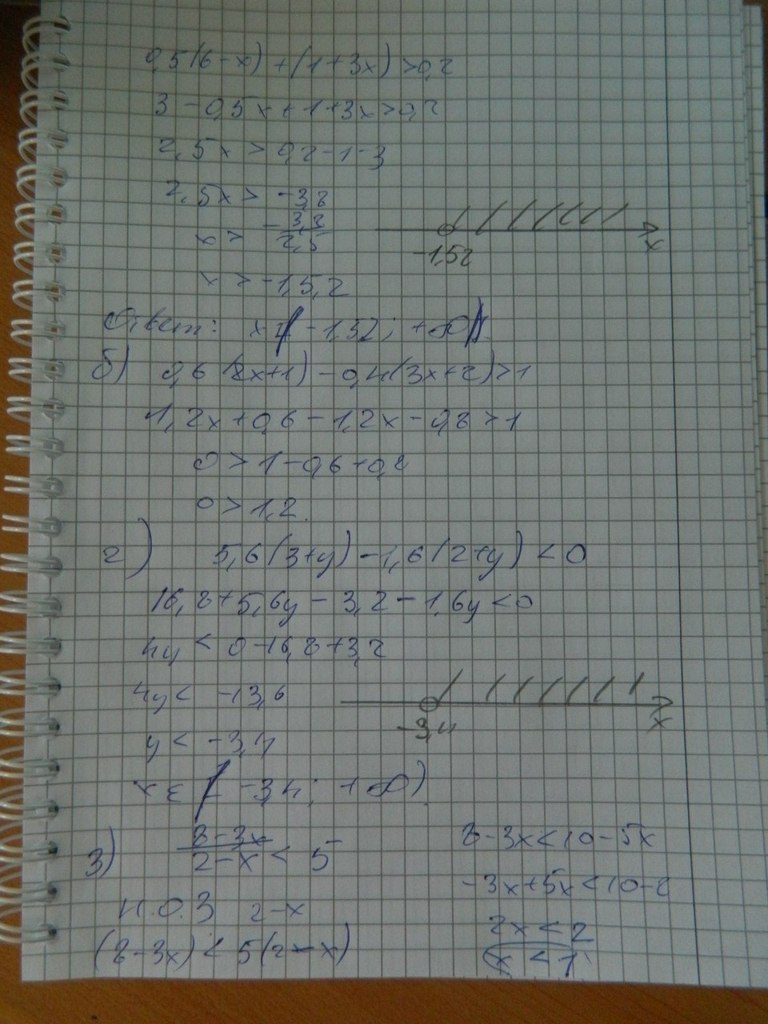 0,5(6-x)+(1+3x)>0,2
3-0,5x+1+3x>0,2
2,5x>0,2-1-3
2,5x> -3,8
x> -3,8/2,5
-1,52 x
x>-1,5,2
Ответ: x ( -1,52; +∞)
б) 0,6(2x+1)-0,4(3x+2)>1
1,2x+0,6-1,2x-0,8>1
0>1-0,6+0,8
0>1,2
г) 5,6(3+y)-1,6(2+y)<0
16,8+5,6y-3,2-1,6y<0
4y<0-16,8+3,2
4y< -13,6
-3,4 x
y< -3,4
x ∈ ( -3,4; +∞)
3) 8-3x/2-x < 5
Н.О.З 2-x
(8-3x)<5(2-x)
8-3x<10-5x
-3x+5x<10-8
2x<2
x<1